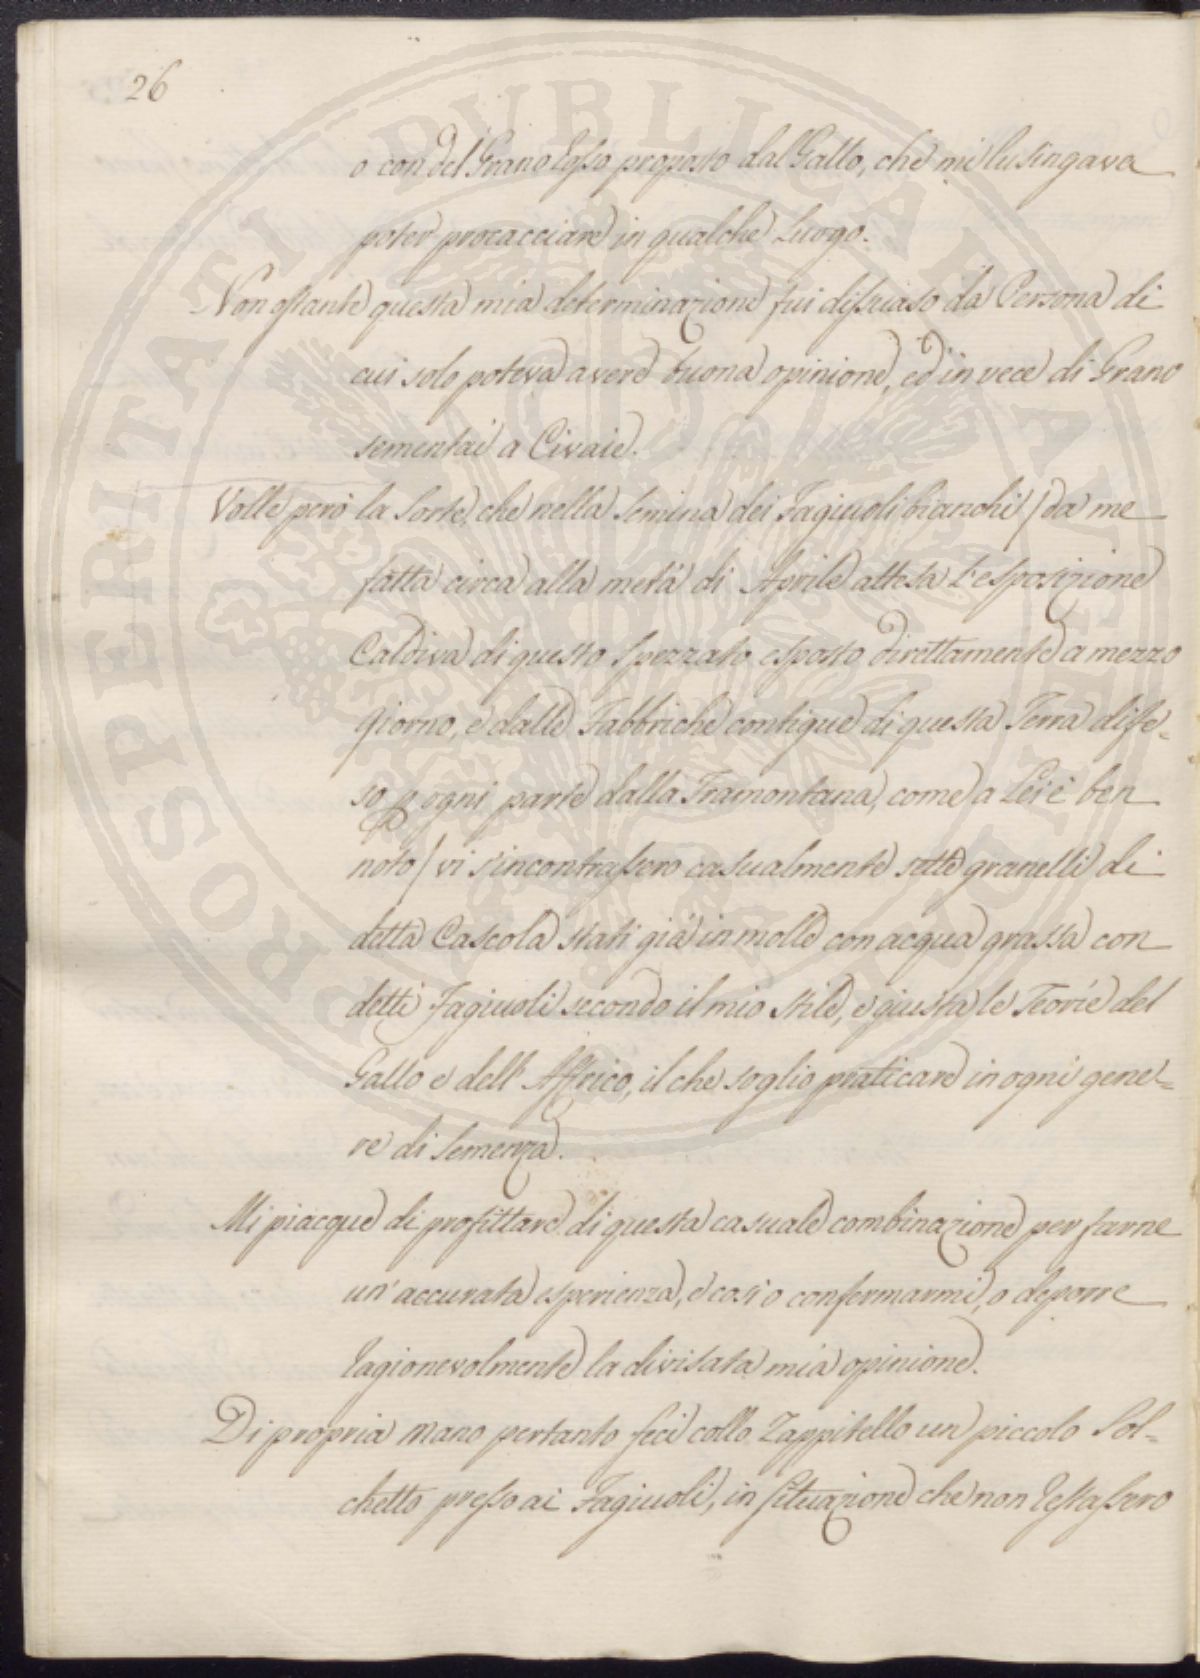 26
o con del Grano Rosso proposto dal Gallo, che mi lusingava
poter procacciare in qualche Luogo.
Non ostante questa mia determinazione fui dissuaso da Persona di
cui solo poteva avere buona opinione, ed in vece di Grano
sementai a Civaie.
Volle però la Sorte, che nella Semina dei Fagiuoli bianchi / da me
fatta circa alla metà di Aprile attesa l'esposizione
Caldiva di questo Spezzato esposto direttamente a mezzo
giorno, e dalle Fabbriche contigue di questa Terra dife-
so p ogni parte dalla Tramontana, come a Lei è ben
noto / vi s'incontrassero casualmente sette granelli di
detta Cascola stati già in molle con acqua grassa con
detti Fagiuoli secondo il mio stile, e giusta le Teorie del
Gallo e dell' Affrico, il che soglio praticare in ogni gene-
re di Semenza.
Mi piacque di profittare di questa casuale combinazione per farne
un' accurata esperienza, e così o confermarmi, o deporre
ragionevolmente la divisata mia opinione.
Di propria mano pertanto feci collo Zappitello un piccolo Sol-
chetto presso ai Fagiuoli, in situazione che non restassero
PROSPERITATI PVBLICAE AVGENDAE